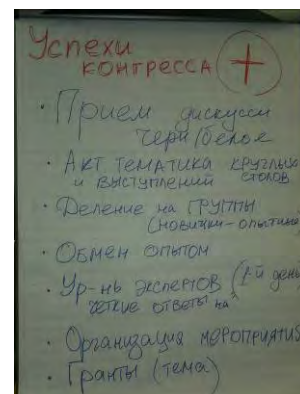 Успехи
конгресса +
• Прием дискусси
черн/белое
• Акт тематика круглых
и выступлений столов
• Деление на группы
(новички-опытные
• Обмен опытом
• Ур-нь экспертов (1-й день
четкие ответы на ?
• Организация мероприятия
• Гранты (тема)